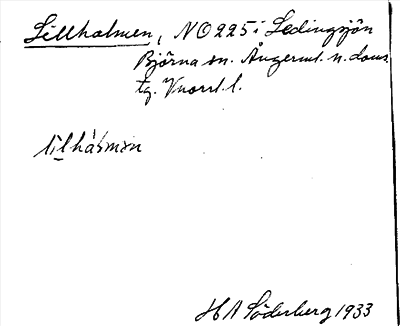 Lillholmen, NO 225 i Ledingsjön
Björna sn. Ångerml. n. doms.
tg. Vnorrl. l.
lilhȧ́lmən
H A Söderberg 1933